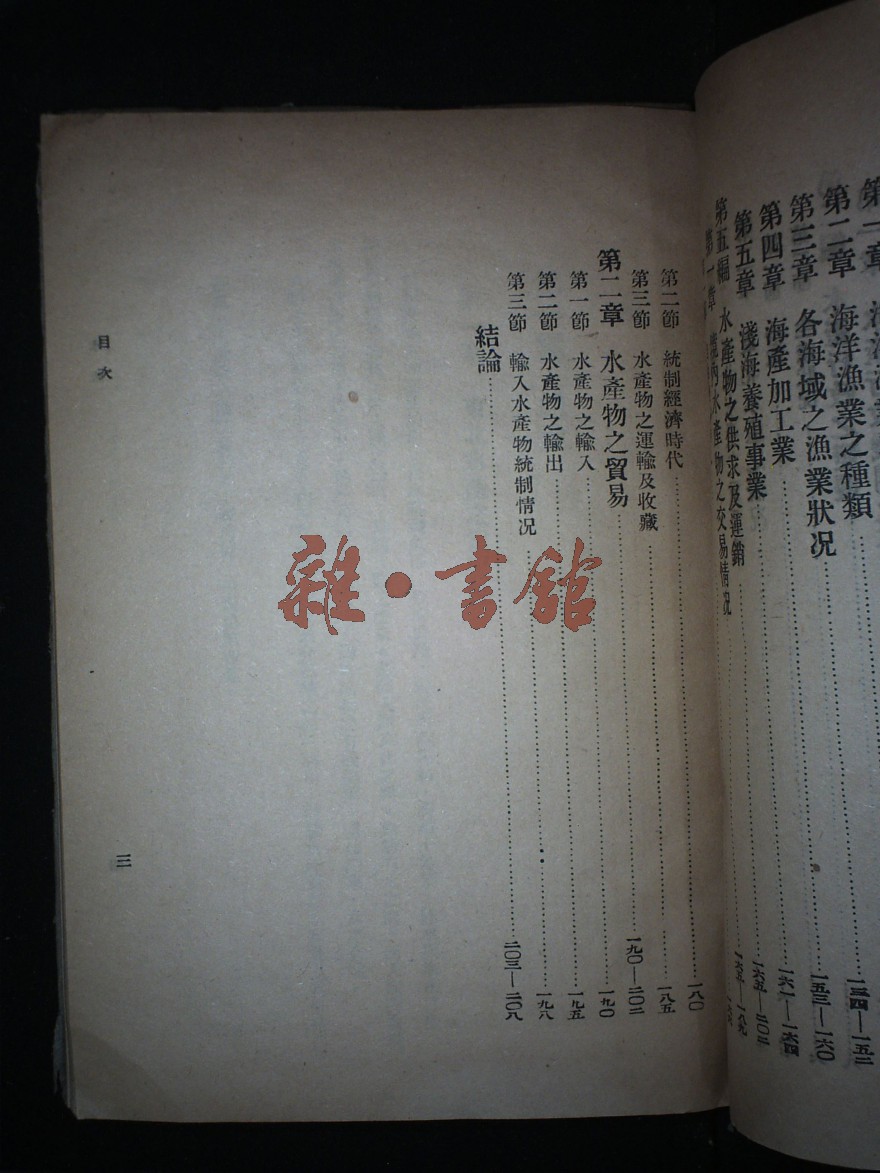 第二章 海洋漁業之種類……一三四—一五二
第三章 各海域之漁業狀况……一五三—一六〇
第四章 海產加工業……一六一—一六四
第五章 淺海養殖事業
第五編 水產物之供求及運銷……一六五—二〇二
第一章 水產物之交易情况……一六五—一八九
第二節 統制經濟時代……一八〇
第三節 水產物之運輸及收藏……一八五
第二章 水產物之貿易……一九〇—二〇二
第一節 水產物之輸入……一九〇
第二節 水產物之輸出……一九五
第三節 輸入水產物統制情况……一九八
結論……二〇三—二〇八
目次
三
雜·書館